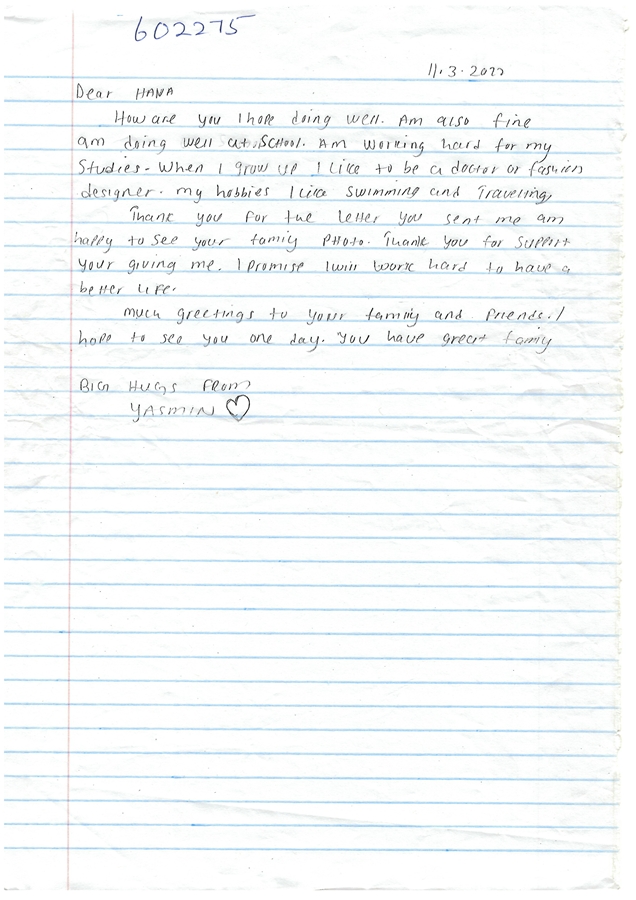 602275
11.3.2022
Dear HANA
How are you I hope doing well. Am also fine
am doing well at SCHOOL. Am working hard for my
Studies - When I grow up I like to be a doctor or fashion
designer. my hobbies I like swimming and Traveling,
Thank you for the letter you sent me am
happy to see your family PHOTO. Thank you for support
your giving me. I promise I will work hard to have a
better life.
much greetings to your family and friends. I
hope to see you one day. you have great family
BIG HUGS FROM
YASMIN ♡